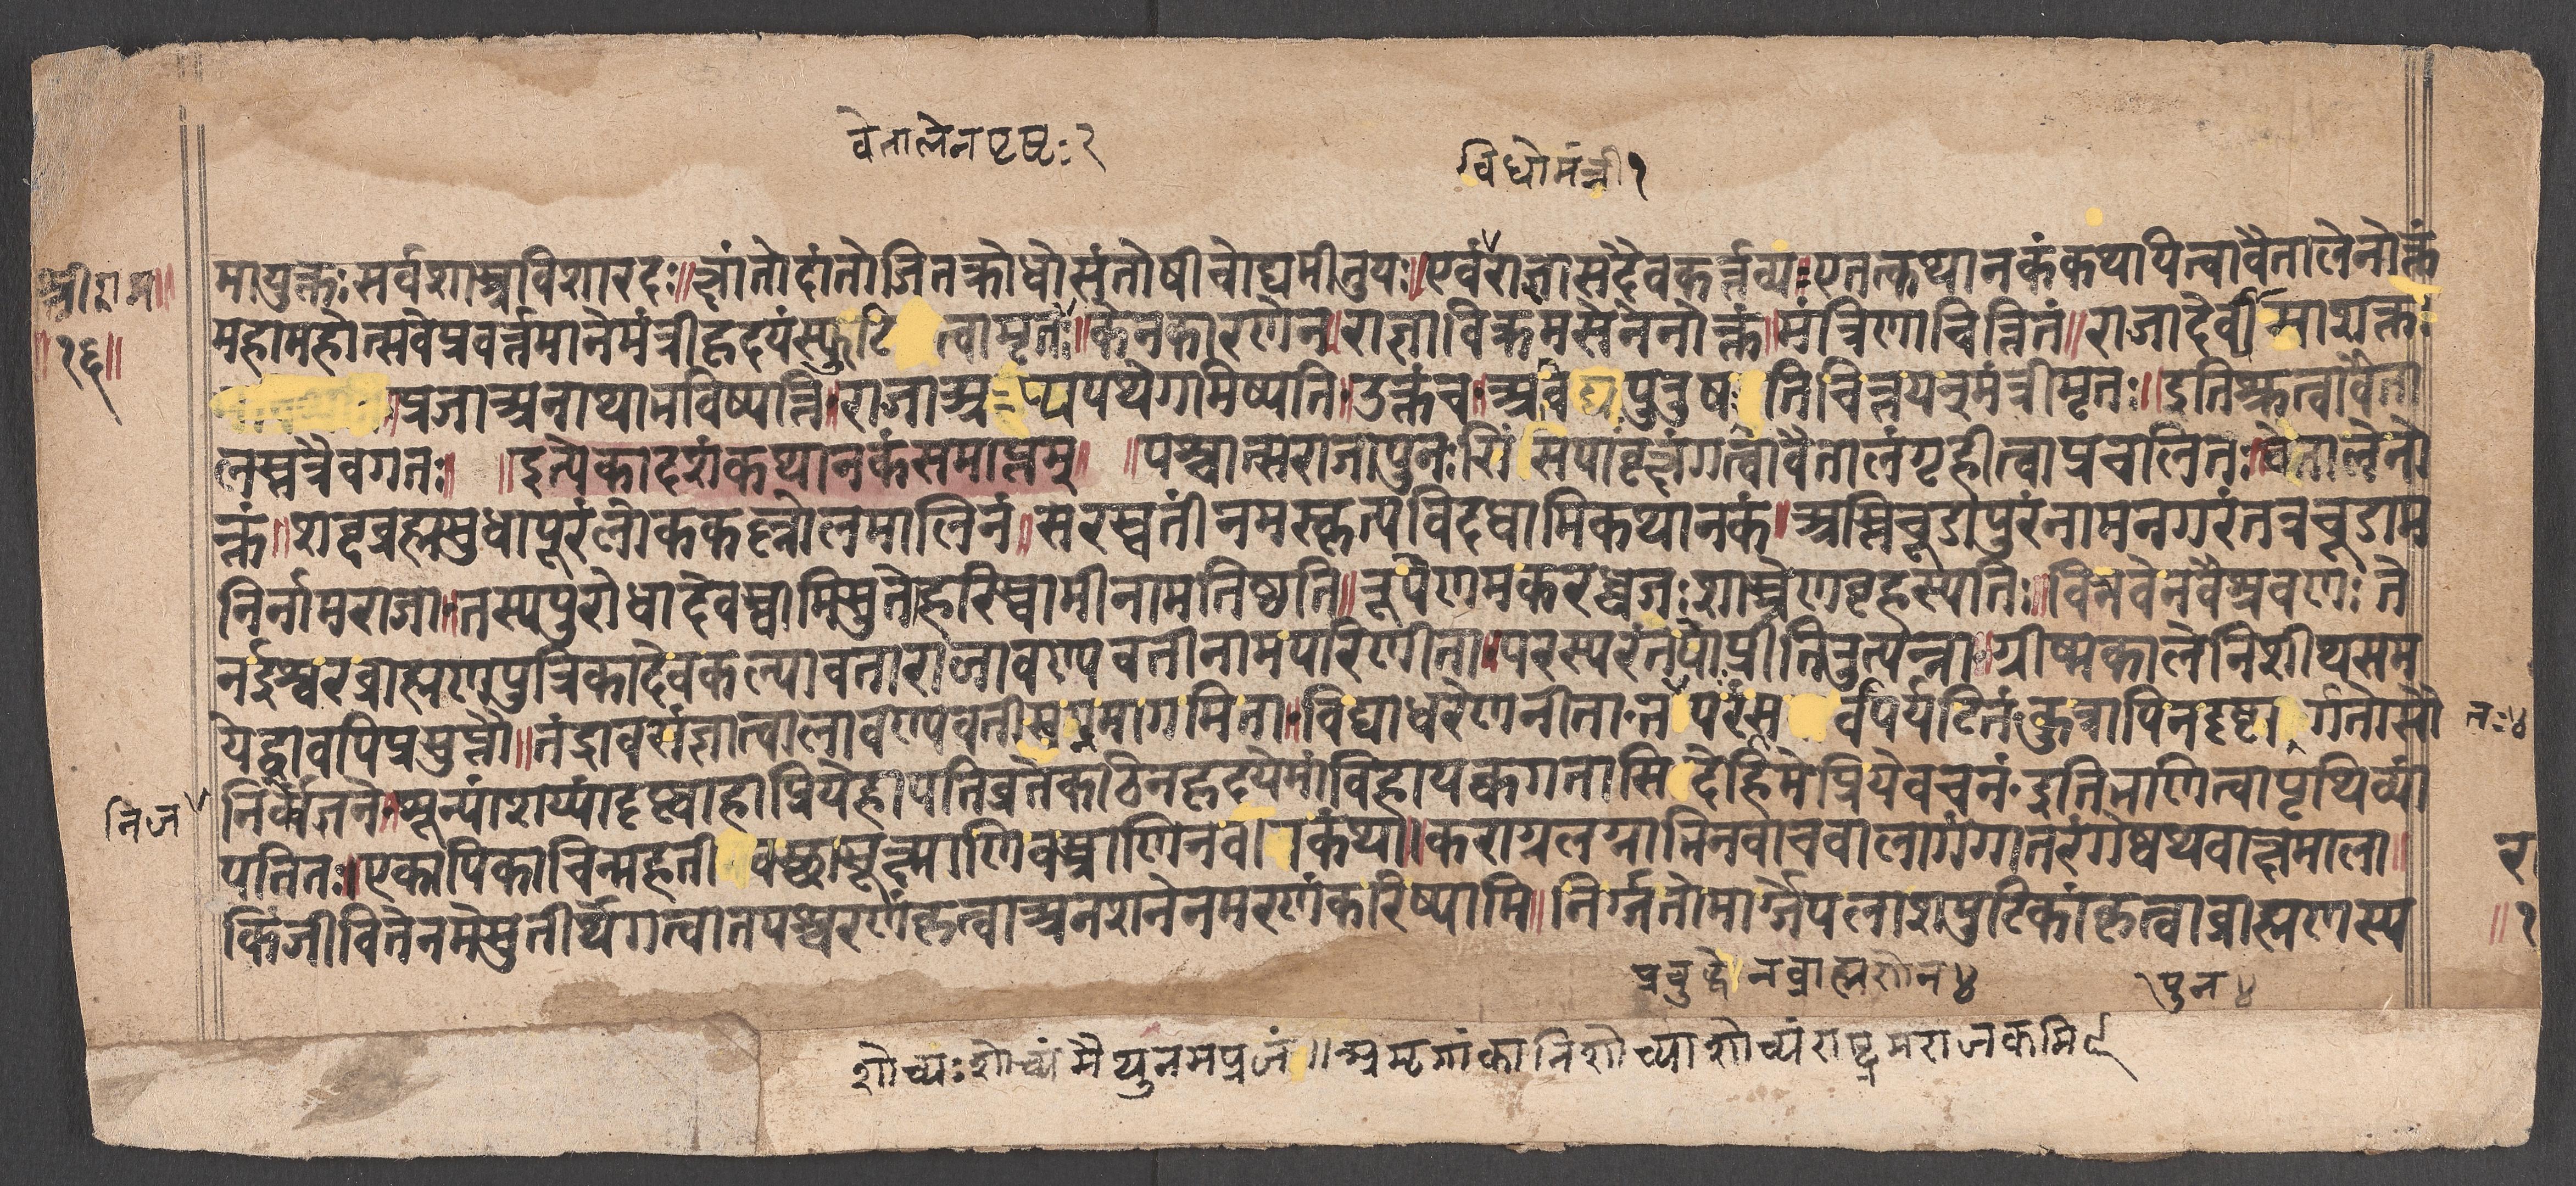 वेतालेन पृष्टः २
विधो मंत्री १
मायुक्तः सर्वशास्त्रविशारदः॥ क्षांतो दांतो जितक्रोधो संतोषी चोद्यमी नृपः॥ एवं राज्ञा सदैव कर्त्तव्यं॥ एतत्कथानकं कथापयित्वा वैतालेनोक्तं
श्रीराम॥
महामहोत्सवे प्रवर्त्तमाने मंत्री हृदयं स्फुटित्वा मृतः॥ केन कारणेन॥ राज्ञा विक्रमसेनेनोक्तं॥ मंत्रिणा चिंतितं॥ राजा देवी
॥१६॥
प्रजा अनाथा भविष्यन्ति॥ राजा अप्यपथे गमिष्यति॥ उक्तं च॥ अविद्यपुरुषः ति चिन्तयन् मंत्री मृतः॥ इति श्रुत्वा वैता
लस्तत्रैव गतः॥ ॥इत्येकादशं कथानकं समाप्तम्॥ ॥पश्चात्स राजा पुनः शिंसिपावृक्षं गत्वा वैतालं गृहीत्वा प्रचलितः॥ वेतालेनो
क्तं॥ शब्दब्रह्मसुधापूरं लोककल्लोलमालिनं॥ सरस्वतीं नमस्कृत्य विदधामि कथानकं॥ अस्ति चूडापुरं नाम नगरं तत्र चूडाम
निर्नाम राजा॥ तस्य पुरोधा देवस्वामिसुतो हरिस्वामी नाम तिष्ठति॥ रूपेण मकरध्वजः शास्त्रेण बृहस्पतिः॥ विभवेन वैश्रवणः ते
नईश्वरब्राह्मणपुत्रिका देवकन्यावतारा लावण्यवती नाम परिणीता॥ परस्परं तयोः प्रीतिरुत्पन्ना॥ ग्रीष्मकाले निशीथसम
ये द्वावपि प्रसुप्तौ॥ तं द्रावसं ज्ञात्वा लावण्यवती मागमिता॥ विद्याधरेण नीता॥ परं स र्व पर्यटितं कुत्रापि न दृष्टा र्गतोसौ
तः४
निर्केतने॥ सून्यां शय्यां दृष्ट्वा हा प्रिये हा पतिव्रते कठिनहृदये मां विहाय क्व गतासि देहि मे प्रिये वचनं॥ इति भणित्वा पृथिव्यां
निज
पतितः॥ एकापि काचिन्महती सूक्ष्माणि वस्त्राणि नवा कंथा॥ कराग्रलग्नाभिनवा च वाला गंगातरंगेष्वथवाक्षमाला॥
किं जीवितेन मे सुतीर्थे गत्वा तपश्चरणं कृत्वा अनशनेन मरणं करिष्यामि॥ निर्ग्गतो मार्ग्गे पलाशपुटिकां कृत्वा ब्राह्मणस्य
प्रबुद्धेन ब्राह्मणेन ४
पुन ४
शोच्यः शोच्यं मैथुनमप्रजं॥ शोच्या शोच्यं राष्ट्रमराजकमि